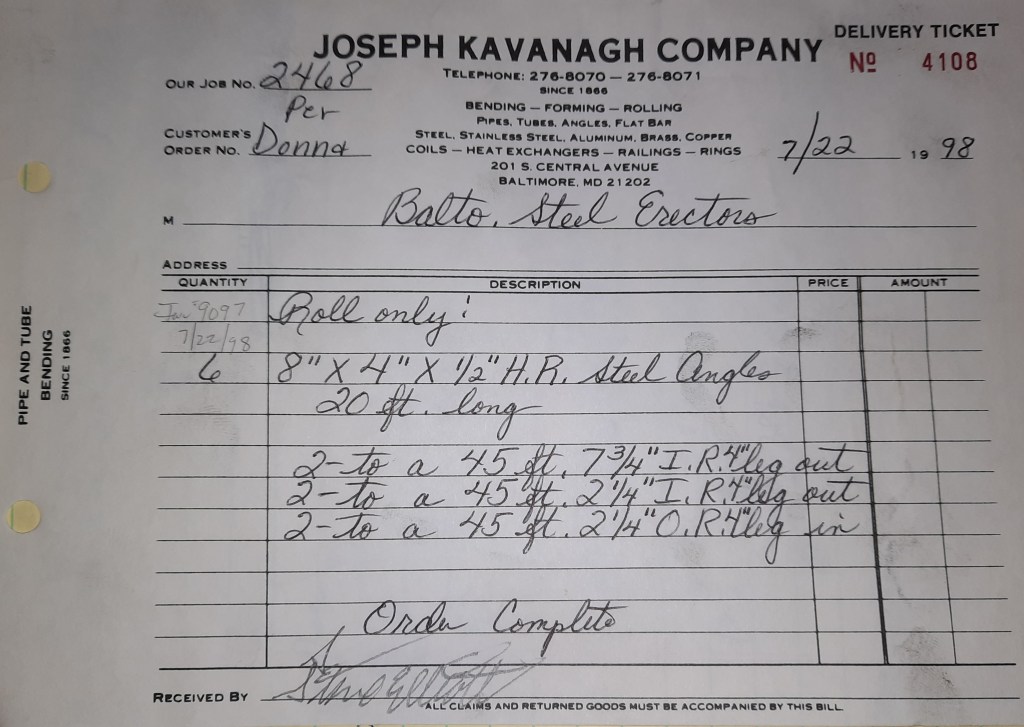 JOSEPH KAVANAGH COMPANY
DELIVERY TICKET
Nº 4108
OUR JOB NO. 2468
TELEPHONE: 276-8070 — 276-8071
SINCE 1866
Per
BENDING — FORMING — ROLLING
PIPES, TUBES, ANGLES, FLAT BAR
CUSTOMER'S
ORDER NO. Donna
STEEL, STAINLESS STEEL, ALUMINUM, BRASS, COPPER
COILS — HEAT EXCHANGERS — RAILINGS — RINGS
7/22 19 98
201 S. CENTRAL AVENUE
BALTIMORE, MD 21202
M Balto. Steel Erectors
ADDRESS
QUANTITY DESCRIPTION PRICE AMOUNT
9097 Roll only!
7/22/98
6 8" X 4" X 1/2" H.R. Steel Angles
20 ft. long
2-to a 45 ft. 7 3/4" I.R. 4" leg out
2-to a 45 ft. 2 1/4" I.R. 4" leg out
2-to a 45 ft. 2 1/4" O.R. 4" leg in
Order Complete
RECEIVED BY Steve Elliott
ALL CLAIMS AND RETURNED GOODS MUST BE ACCOMPANIED BY THIS BILL
PIPE AND TUBE
BENDING
SINCE 1866